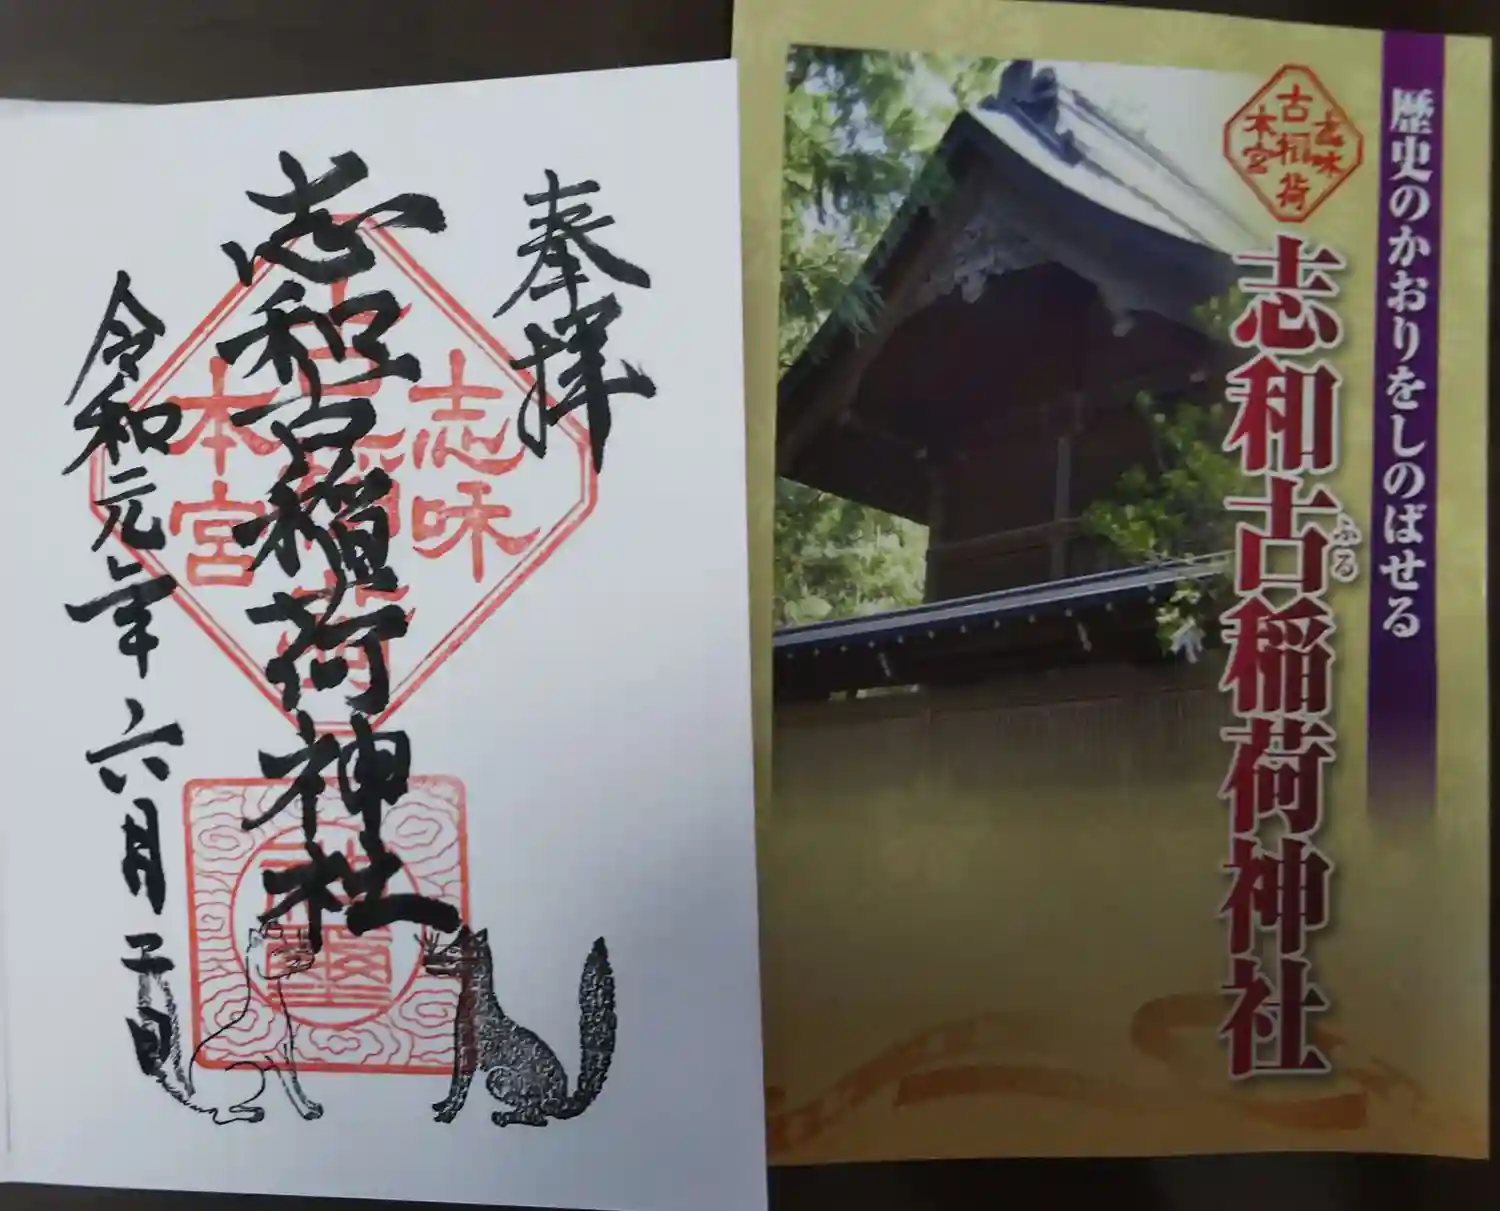 奉拝
志味
古稲荷
本宮
志和古稲荷神社
令和元年六月
日
歴史のかおりをしのばせる
志味
古稲荷
本宮
ふる
志和古稲荷神社